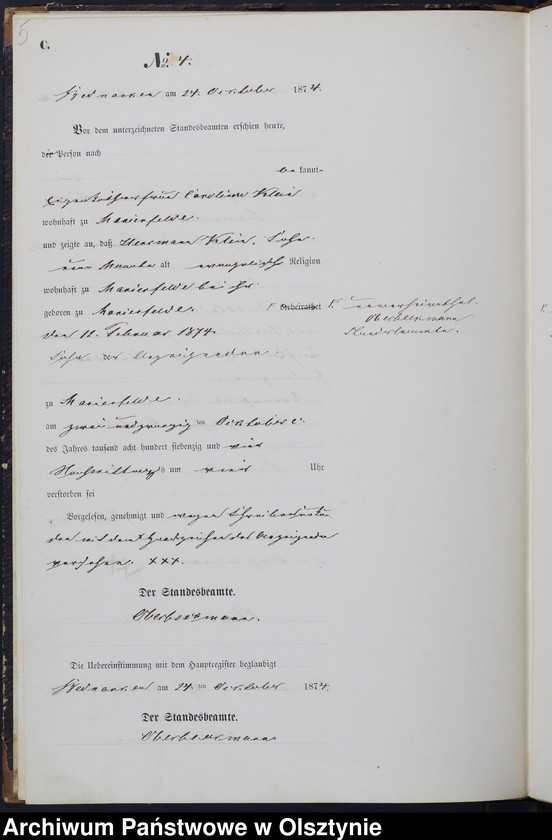 5
C.
No. 4.
am 24. Oktober 1874.
Vor dem unterzeichneten Standesbeamten erschien heute,
der Person nach
be kannt
Eigenkäthnerfrau Caroline Klein
wohnhaft zu Marienfelde.
und zeigte an, daß Hermann Klein, Sohn
alt evangelischer Religion
wohnhaft zu Marienfelde bei ihr
geboren zu Marienfelde. F Verheirathet F. unverheirathet.
Oberbeckmann
Standesbeamte.
den 12. Februar 1874.
Sohn der Anzeigenden
zu Marienfelde.
am zwei und zwanzig ten Oktober c.
des Jahres tausend acht hundert siebenzig und vier
Nachmittags um vier Uhr
verstorben sei
Vorgelesen, genehmigt und wegen Schreibensunkun
den mit dem Handzeichen des Anzeigenden
versehen. XXX.
Der Standesbeamte.
Oberbeckmann.
Die Uebereinstimmung mit dem Hauptregister beglaubigt
am 24. ten Oktober 1874.
Der Standesbeamte.
Oberbeckmann
Archiwum Państwowe w Olsztynie